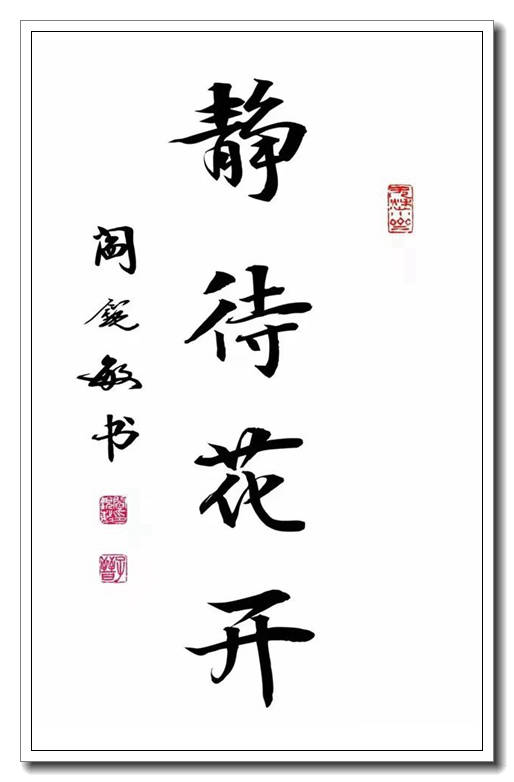 静待花开
阎锐敏书